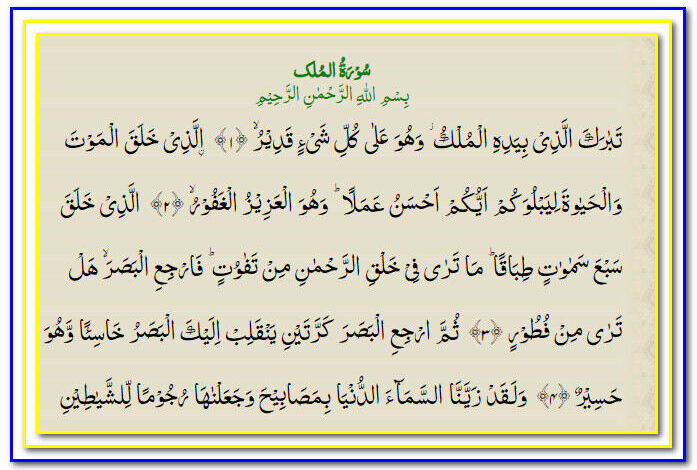 سُوۡرَةُ المُلک
بِسۡمِ اللهِ الرَّحۡمٰنِ الرَّحِيۡمِ
تَبٰرَكَ الَّذِىۡ بِيَدِهِ الۡمُلۡكُ ۚ وَهُوَ عَلٰى كُلِّ شَىۡءٍ قَدِيۡرُ ۙ‏ ﴿۱﴾ اۨلَّذِىۡ خَلَقَ الۡمَوۡتَ
وَالۡحَيٰوةَ لِيَبۡلُوَكُمۡ اَيُّكُمۡ اَحۡسَنُ عَمَلًا ؕ وَهُوَ الۡعَزِيۡزُ الۡغَفُوۡرُ ۙ‏ ﴿۲﴾ الَّذِىۡ خَلَقَ
سَبۡعَ سَمٰوٰتٍ طِبَاقًا ؕ مَا تَرٰى فِىۡ خَلۡقِ الرَّحۡمٰنِ مِنۡ تَفٰوُتٍ ؕ فَارۡجِعِ الۡبَصَرَ ۙ هَلۡ
تَرٰى مِنۡ فُطُوۡرٍ‏ ﴿۳﴾ ثُمَّ ارۡجِعِ الۡبَصَرَ كَرَّتَيۡنِ يَنۡقَلِبۡ اِلَيۡكَ الۡبَصَرُ خَاسِئًا وَّهُوَ
حَسِيۡرٌ‏ ﴿۴﴾ وَلَـقَدۡ زَيَّـنَّا السَّمَآءَ الدُّنۡيَا بِمَصَابِيۡحَ وَجَعَلۡنٰهَا رُجُوۡمًا لِّلشَّيٰطِيۡنِ